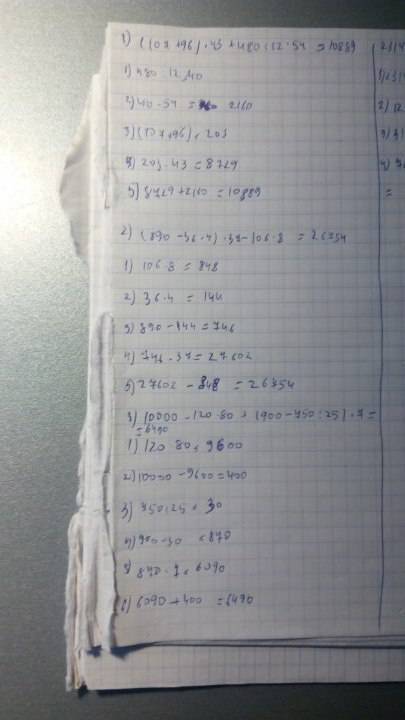 1) (107+96)·43+480:12·54=10889
1) 480:12.40
2) 40·54=2160
3) (107+96)=203
4) 203·43=8729
5) 8729+2160=10889
2) (890-36·4)·37-106·8=26754
1) 106·8=848
2) 36·4=144
3) 890-144=746
4) 746·37=27602
5) 27602-848=26754
3) 10000-120·80+(900-750:25)·7=
=6490
1) 120·80=9600
2) 10000-9600=400
3) 750:25=30
4) 900-30=870
5) 870·7=6090
6) 6090+400=6490